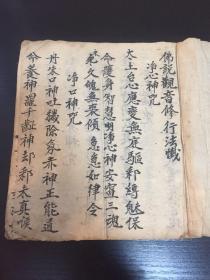 佛說觀音修行法懺
淨心神咒
太上台心應变無度驅邪縛魅保
命護身智慧明淨心神安寧三魂
永久魄無喪傾 急急如律令
淨口神咒
丹朱口神吐穢除氛赤神正能通
命養神羅千齒神却邪太真喉